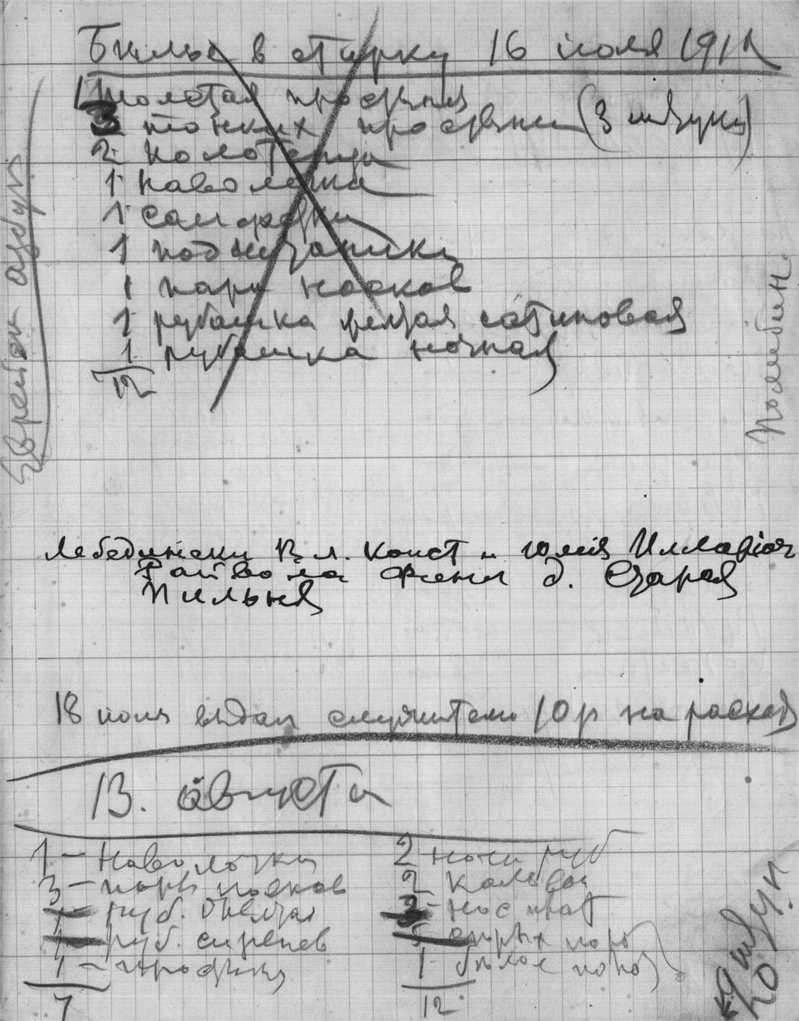 Бѣлье в стирку 16 июля 191
1 толстая простыня
3 тонких простыни (3 штуки)
2 полотенца
1 наволочка
1 салфетки
1 подштаники
1 пара носков
1 рубашка белая сатиновая
1 рубашка ночная
12
Лебединский Вл. Конст и Юлия Илларіон
Райвола Финл д. Старая
Пильня
18 июля выдал служителю 10 р на расход
13. августа
1 – Наволочки
3 – пары носков
руб. белая
руб. сиренев
1 – простыня
7
2 ночн руб
2 Кальсон
3 – нос плат
1 – белое
12